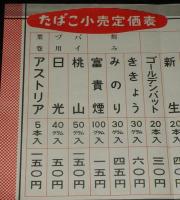 たばこ小売定価表
新生 20本
ゴールデンバット 20本入 三〇円
刻み
ききょう 30グラム入 六〇円
みのり 30グラム入 四五円
富貴煙 100グラム入
パイプ用
桃山 50グラム入 一五〇円
日光 40グラム入
葉巻
アストリア 5本入 一五〇円